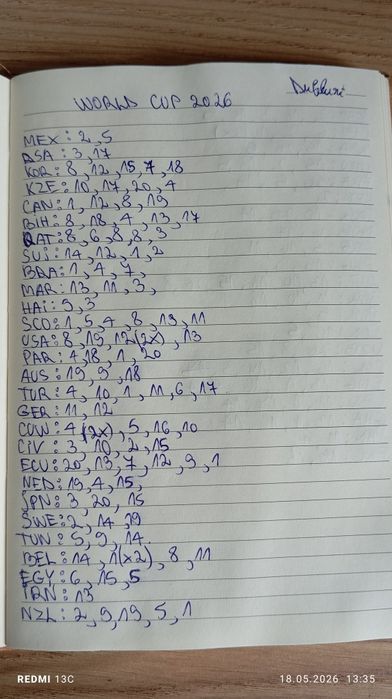 Dubluri
WORLD CUP 2026
MEX: 2, 5
RSA: 3, 17
KOR: 8, 12, 15, 7, 18
KZE: 10, 17, 20, 4
CAN: 1, 12, 8, 19
BIH: 8, 18, 4, 13, 17
QAT: 8, 6, 8, 8, 3
SUI: 14, 12, 1, 2
BRA: 1, 4, 7,
MAR: 13, 11, 3,
HAI: 9, 3
SCO: 1, 5, 4, 8, 19, 11
USA: 8, 19, 12(2x), 13
PAR: 4, 18, 1, 20
AUS: 19, 9, 18
TUR: 4, 10, 1, 11, 6, 17
GER: 11, 12
CUW: 4(2x), 5, 16, 10
CIV: 3, 10, 2, 15
ECU: 20, 13, 7, 12, 9, 1
NED: 19, 4, 15,
JPN: 3, 20, 15
SWE: 2, 14, 19
TUN: 5, 9, 14
BEL: 14, 1(x2), 8, 11
EGY: 6, 15, 5
IRN: 13
NZL: 2, 9, 19, 5, 1
REDMI 13C
18.05.2026 13:35